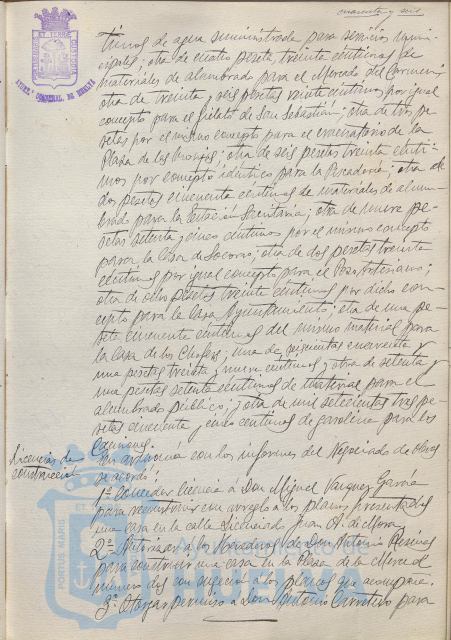 cuarenta y seis
timos de agua suministrada para servicios muni-
cipales; otra de cuatro pesetas treinta centimos de
materiales de alumbrado para el Mercado del Carmen;
otra de treinta y seis pesetas veinte centimos por igual
concepto para el de San Sebastián; otra de tres pe-
setas por el mismo concepto para el evacuatorio de la
Plaza de las Monjas; otra de seis pesetas treinta centi-
mos por concepto identico para la Pescaderia; otra de
dos pesetas cincuenta centimos de materiales de alum-
brado para la Secretaria; otra de nueve pe-
setas setenta y cinco centimos por el mismo concepto
para la Casa de Socorro; otra de dos pesetas treinta
centimos por igual concepto para el
otra de ocho pesetas treinta centimos por dicho con-
cepto para la Casa Ayuntamiento; otra de una pe-
seta cincuenta centimos del mismo material para
la Casa de los; una de quinientas cuarenta y
una pesetas treinta y nueve centimos y otra de setenta y
una pesetas setenta centimos de material para el
alumbrado publico; y otra de mil setecientas tres pe-
setas ochenta y cinco centimos de gasolina para los
camiones.
Licencias de
construcción
En armonia con los informes del Negociado de Obras
se acordó:
1º Conceder licencia á Don Miguel Vazquez Garcia
para reconstruir con arreglo á los planos presentados
una casa en la calle Licenciado Juan A. de Mora,
2º Autorizar á los Herederos de Don Antonio
para construir una casa en la Plaza de la Merced
numero dos con sujecion á los planos que acompaña.
3º Otorgar permiso á Don Antonio Carretero para
PORTUS MARIS
Ayuntamiento de
HUELVA